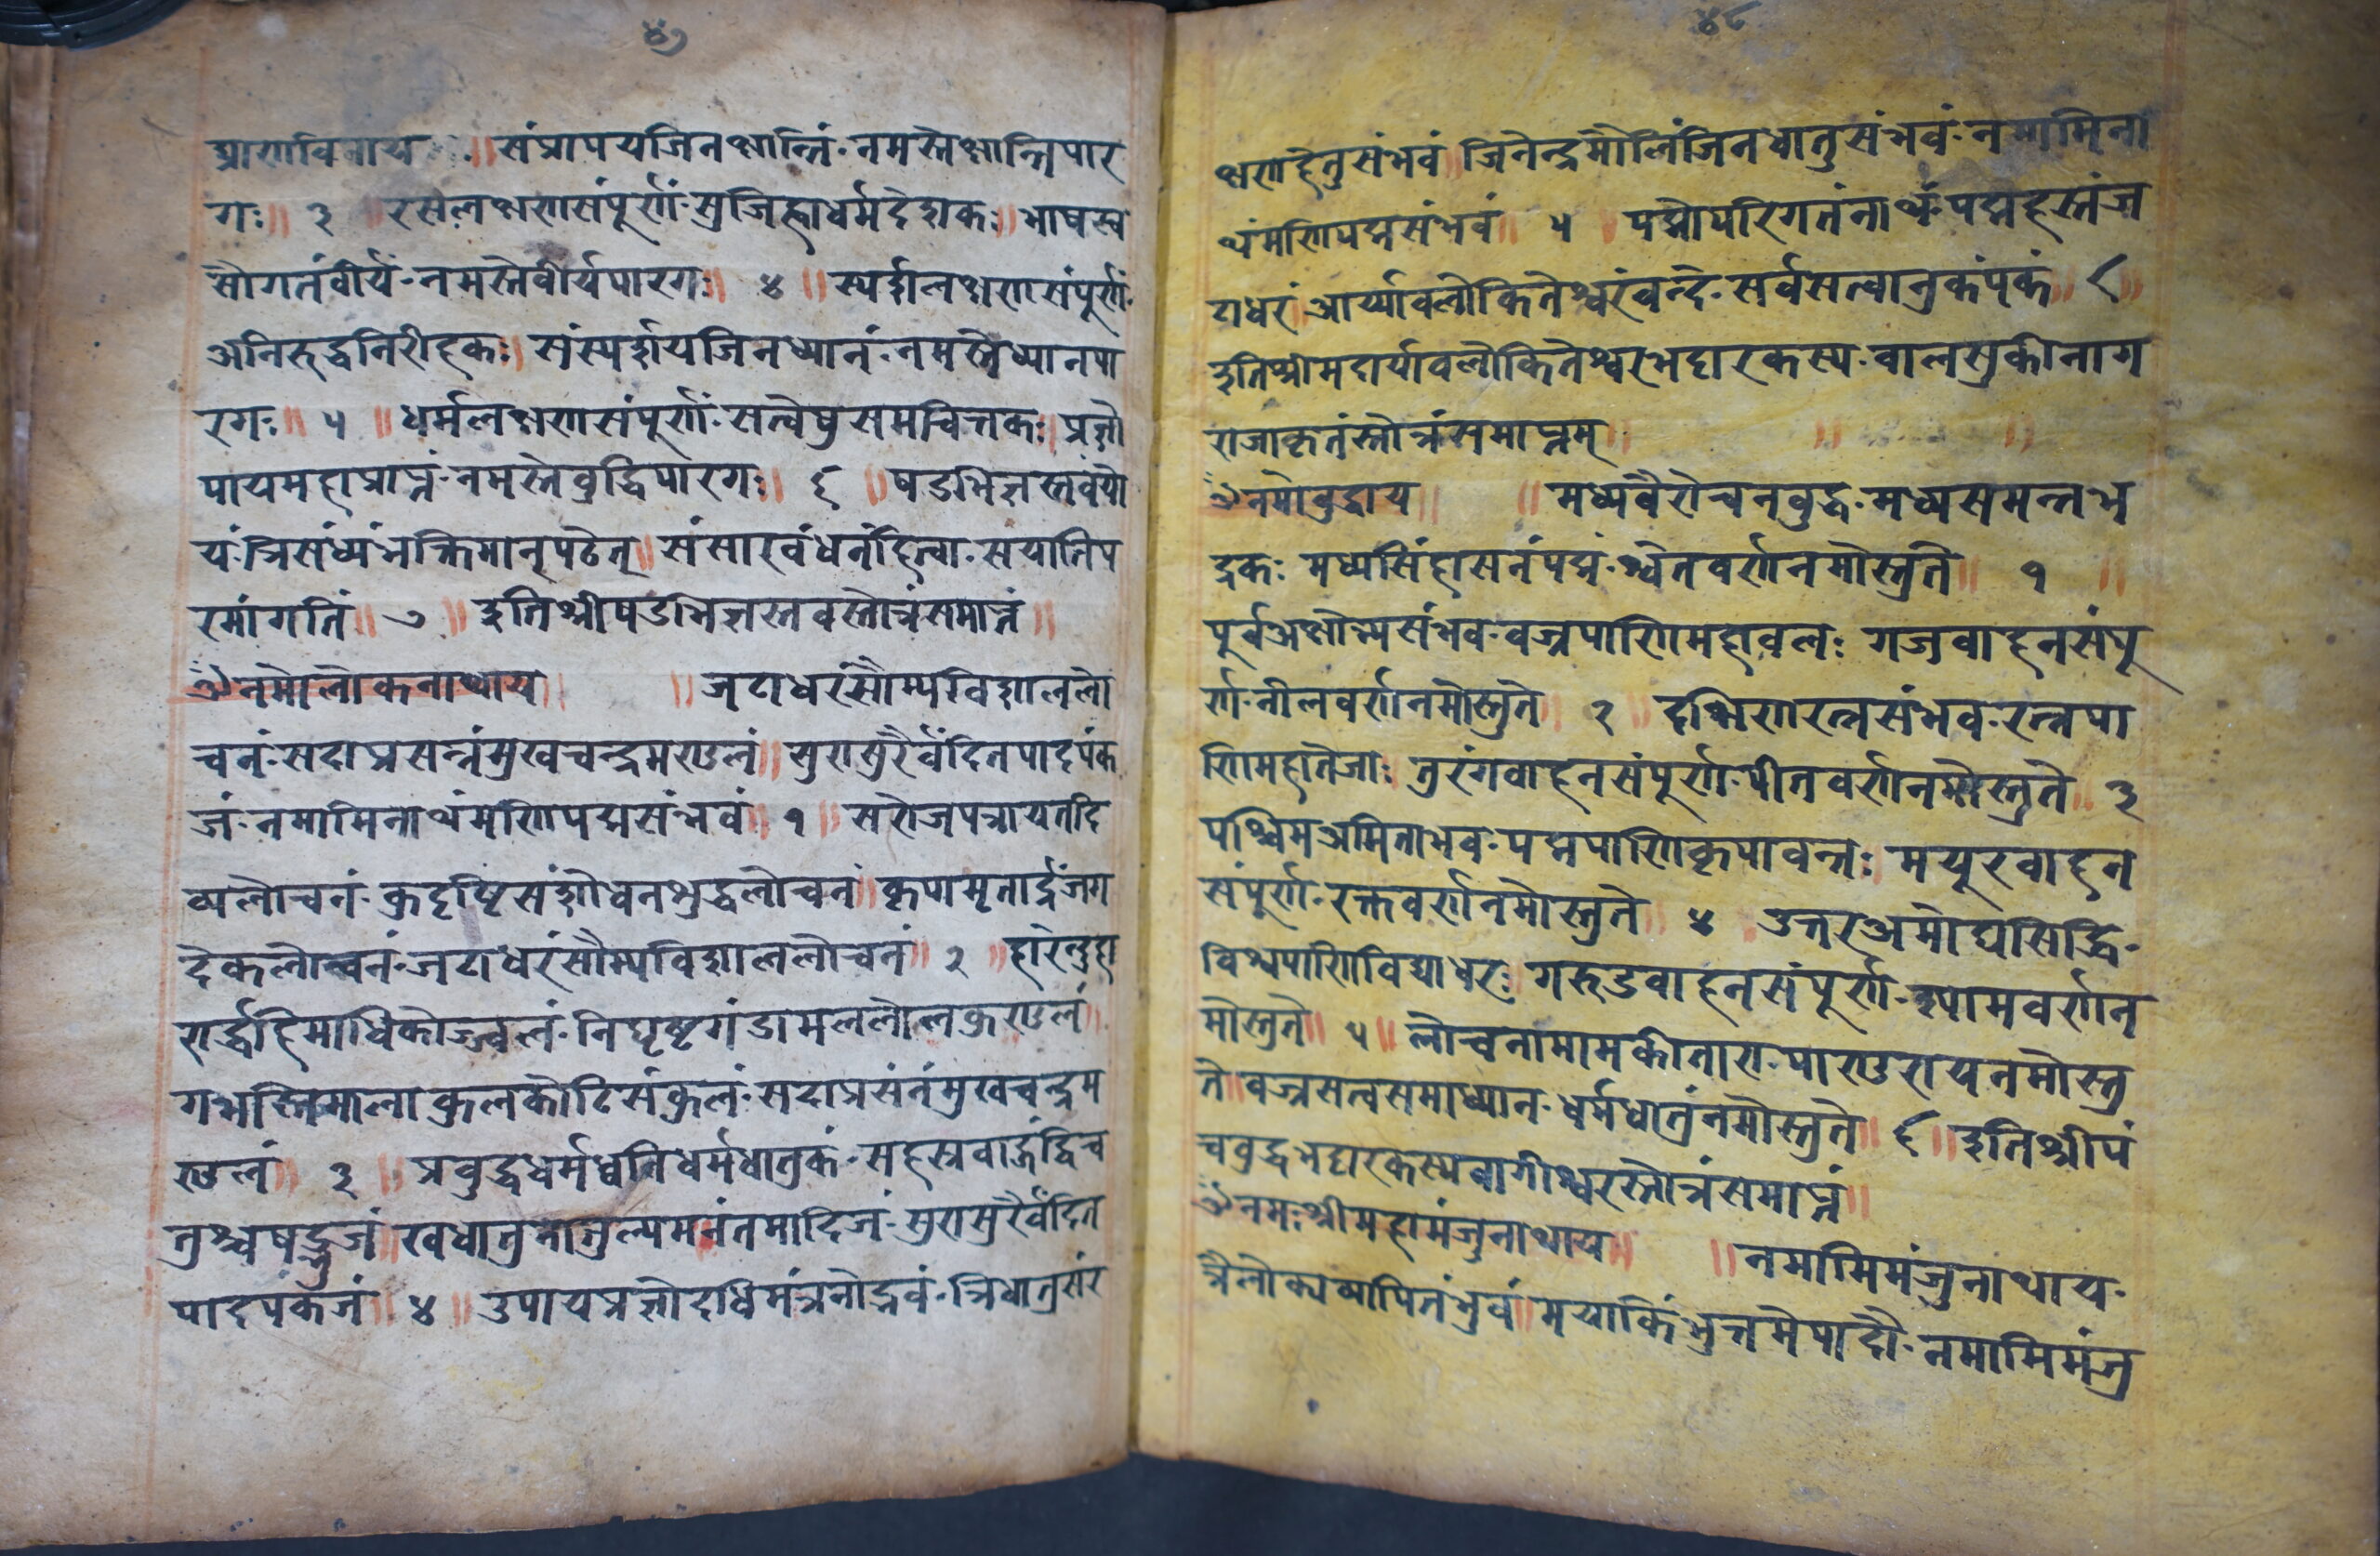 ४७
घ्राणविनाय ॥ संघ्रापयजिनक्षान्तिं नमस्तेक्षान्तिपार
गः ॥ ३ ॥ रसलक्षणसंपुर्णं सुजिह्वाधर्मदेशकः । भाषस्व
सौगतंवीर्यं नमस्तेवीर्यपारगः ॥ ४ ॥ स्पर्शलक्षणसंपुर्णं
अनिरुद्धनिरीहकः । संस्पर्शयजिनध्यानं नमस्तेध्यानपा
रगः ॥ ५ ॥ धर्मलक्षणसंपुर्णं सत्वेषुसमचित्तकः । प्रज्ञो
पायमहाप्राप्तं नमस्तेबुद्धिपारगः ॥ ६ ॥ षडभिज्ञस्तवंयो
यं त्रिसंध्यंभक्तिमान्पठेत् ॥ संसारबंधनंहित्वा सयातिप
रमांगतिं ॥ ७ ॥ इतिश्रीषडभिज्ञस्तवस्तोत्रंसमाप्तं ॥
ॐनमोलोकनाथाय ॥ ॥ जटाधरंसौम्यविशाललो
चनं सदाप्रसन्नंमुखचन्द्रमण्डलं ॥ सुरासुरैर्वंदितपादपंक
जं नमामिनाथंमणिपद्मसंभवं ॥ १ ॥ सरोजपत्रायतदि
व्यलोचनं कुदृष्टिसंशोधनशुद्धलोचनं । कृपामृतार्द्रंजग
देकलोचनं जटाधरंसौम्यविशाललोचनं ॥ २ ॥ हारेन्दुहा
रार्द्धहिमाधिकोज्वलं निघृष्टगंडामललोलकुण्डलं ॥
गभस्तिमालाकुलकोटिसंकुलं सदाप्रसंनंमुखचन्द्रम
ण्डलं ॥ ३ ॥ प्रबुद्धधर्मध्वनिधर्मधातुकं सहस्रबाहुंद्विच
तुश्चषद्भुजं ॥ खधातुमातुल्यमनंतमादिजं सुरासुरैर्वंदित
पादपंकजं ॥ ४ ॥ उपायप्रज्ञोदधिमंत्रनोद्भवं त्रिधातुसंर
४८
क्षणहेतुसंभवं । जिनेन्द्रमौलिंजिनधातुसंभवं नमामिना
थंमणिपद्मसंभवं ॥ ५ ॥ पद्मोपरिगतंनाथं पद्महस्तंज
टाधरं । आर्य्यावलोकितेश्वरंवन्दे सर्वसत्वानुकंपकं ॥ ८ ॥
इतिश्रीमदार्यावलोकितेश्वरभट्टारकस्य वालसुकीनाग
राजाकृतंस्तोत्रंसमाप्तम् ॥ ॥ ॥
ॐनमोबुद्धाय ॥ ॥ मध्यवैरोचनबुद्ध मध्यसमन्तभ
द्रकः मध्यसिंहासनंपद्मं श्वेतवर्णनमोस्तुते ॥ १ ॥
पुर्वअक्षोभ्यसंभव वज्रपाणिमहाबलः गजवाहनसंपु
र्ण नीलवर्णनमोस्तुते ॥ २ ॥ दक्षिणरत्नसंभव रत्नपा
णिमहातेजाः तुरंगवाहनसंपुर्ण पीतवर्णनमोस्तुते ॥ ३
पश्चिमअमिताभव पद्मपाणिकृपावन्तः मयुरवाहन
संपुर्ण रक्तवर्णनमोस्तुते ॥ ४ ॥ उत्तरअमोघसिद्धि
विश्वपाणिविद्याधरः गरुडवाहनसंपुर्ण श्यामवर्णन
मोस्तुते ॥ ५ ॥ लोचनामामकीतारा पाण्डरायनमोस्तु
ते ॥ वज्रसत्वसमाध्यान धर्मधातुंनमोस्तुते ॥ ६ ॥ इतिश्रीपं
चबुद्धभट्टारकस्यबागीश्वरस्तोत्रंसमाप्तं ॥
ॐनमःश्रीमहामंजुनाथाय ॥ ॥ नमामिमंजुनाथाय
त्रैलोक्यव्यापितंभुवं ॥ मयाकिंभुत्तमेपादौ नमामिमंजु